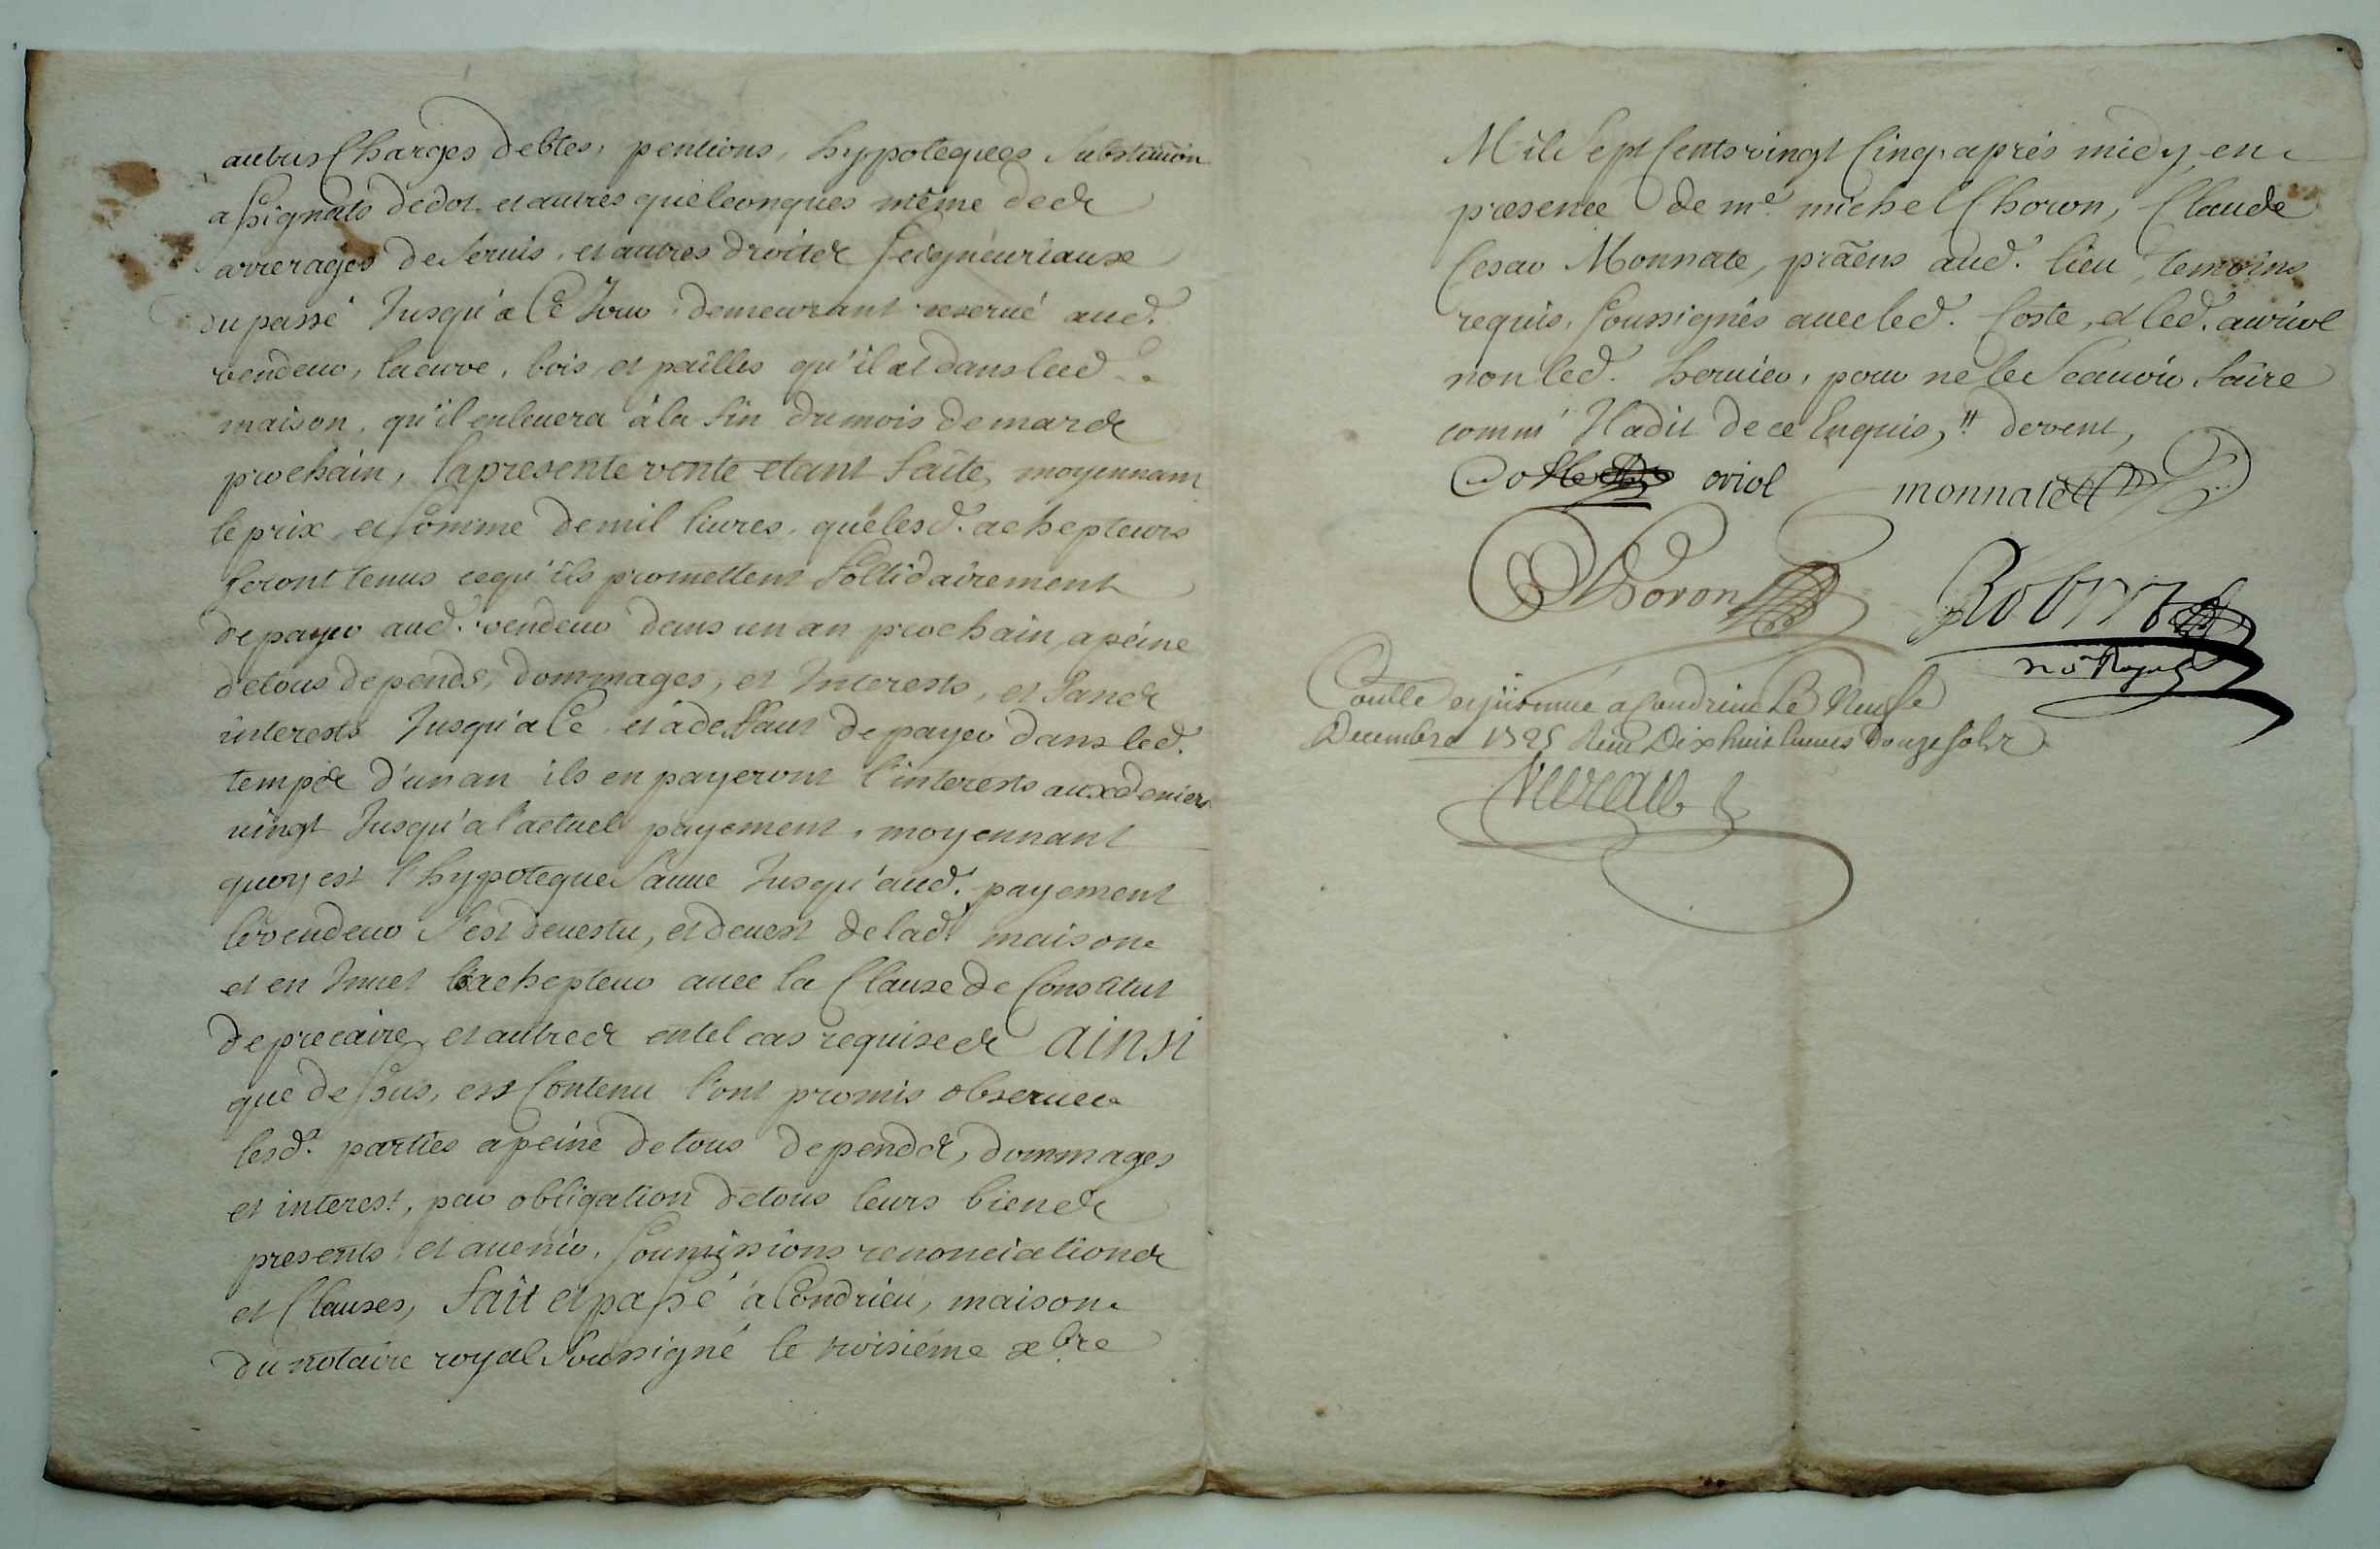 autres Charges debtes, pentions, hypoteques Substitution
assignats de dot et autres quelconques même des
arrerages de servis, et autres droits seigneuriaux
du passé Jusqu'a Ce Jour, demeurant reservé aud.
vendeur, la cuve, bois, et pailles qu'il at dans lad.
maison, qu'il enlevera à la fin du mois de mars
prochain, la presente vente etant faite, moyennant
le prix, et somme de mil livres, que lesd. achepteurs
seront tenus cequ'ils promettent sollidairement
de payer aud. vendeur dans un an prochain, a peine
de tous depends, dommages, et Interests, et sans
interests Jusqu'a Ce, et à deffaut de payer dans led.
temps d'un an ils en payeront l'interests aux deniers
vingt Jusqu'a l'actuel payement, moyennant
quoy est l'hypoteque sauve Jusqu'aud. payement
le vendeur s'est devestu, et devest de lad. maison
et en Invet l'achepteur avec la Clause de Constitut
de precaire, et autres en tel cas requises ainsi
que dessus, est Contenu l'ont promis observer
lesd. parties a peine de tous depends, dommages
et interest, par obligation de tous leurs biens
presents, et avenir, soumissions renonciations
et Clauses, fait et passé à Condrieu, maison
du notaire royal soussigné le troisième xbre
Mil sept Cents vingt Cinq, après midy en
præsence de me. michel Choron, Claude
Cesar Monnate, præns aud. lieu, temoins
requis, soussignés avec led. Coste, et led. auriol
non led. hervier, pour ne le scavoir faire
comm' Il a dit de ce Enquis, " devent,
Coste oriol monnate
Choron Robin
no Royal
Coullé et Condrieu Le Neufe
Decembre 1725 Reçu Dix huit livres Douze sols